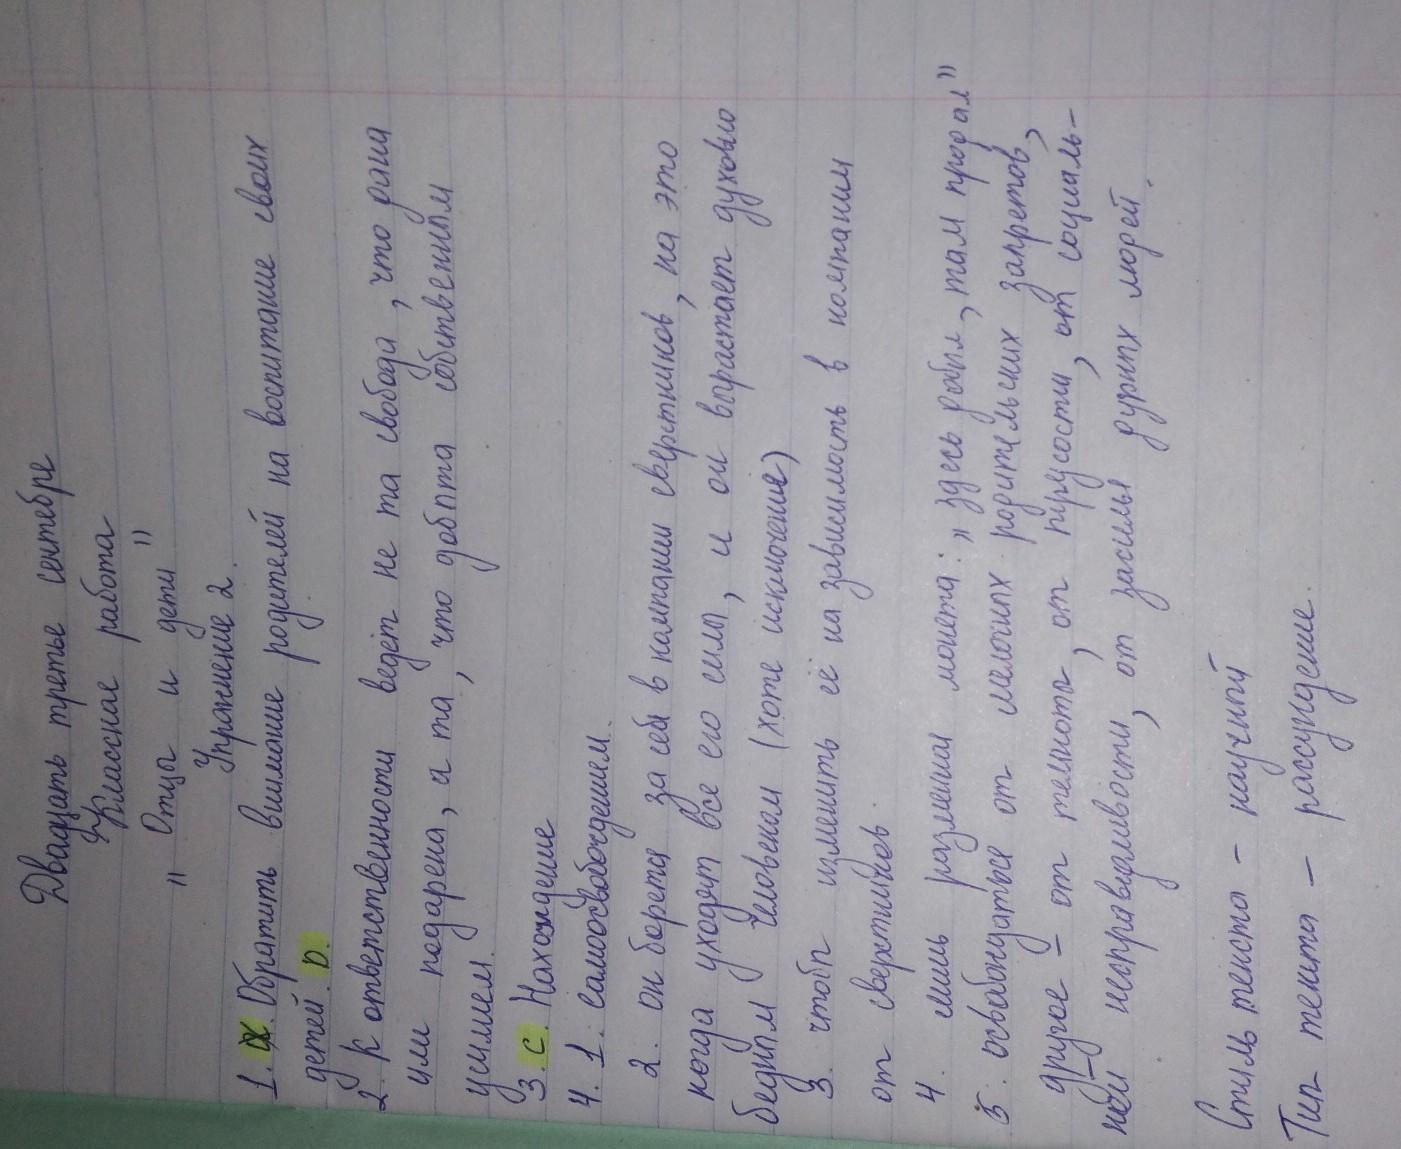 Двадцать третье сентебре
Класснае работа
" Отца и дети "
Упражнение 2.
1. Обратить внимание родителей на воспитание своих
детей. D.
2. К ответственности ведёт не та свобода, что рана
или подарена, а та, что добпта собственнпм
усилием.
3. C. Нахождение
4. 1. самоосвобождением.
2. он борется за себя в кампании сверстников, на это
когда уходят все его сила, и он впрастает духовно
беднпм человеком (хоте исключение)
3. чтобп изменить её на зависимость в компании
от сверстников
4. лишь разменная монета: " здесь робил, там продал"
5. освобондаться от мелочнпх родительских запретов,
другае - от темнота, от трусости, от социаль-
ней несправедливости, от засилья дурнпх людей.
Стиль текста - научнпй
Тип текста - рассундение.